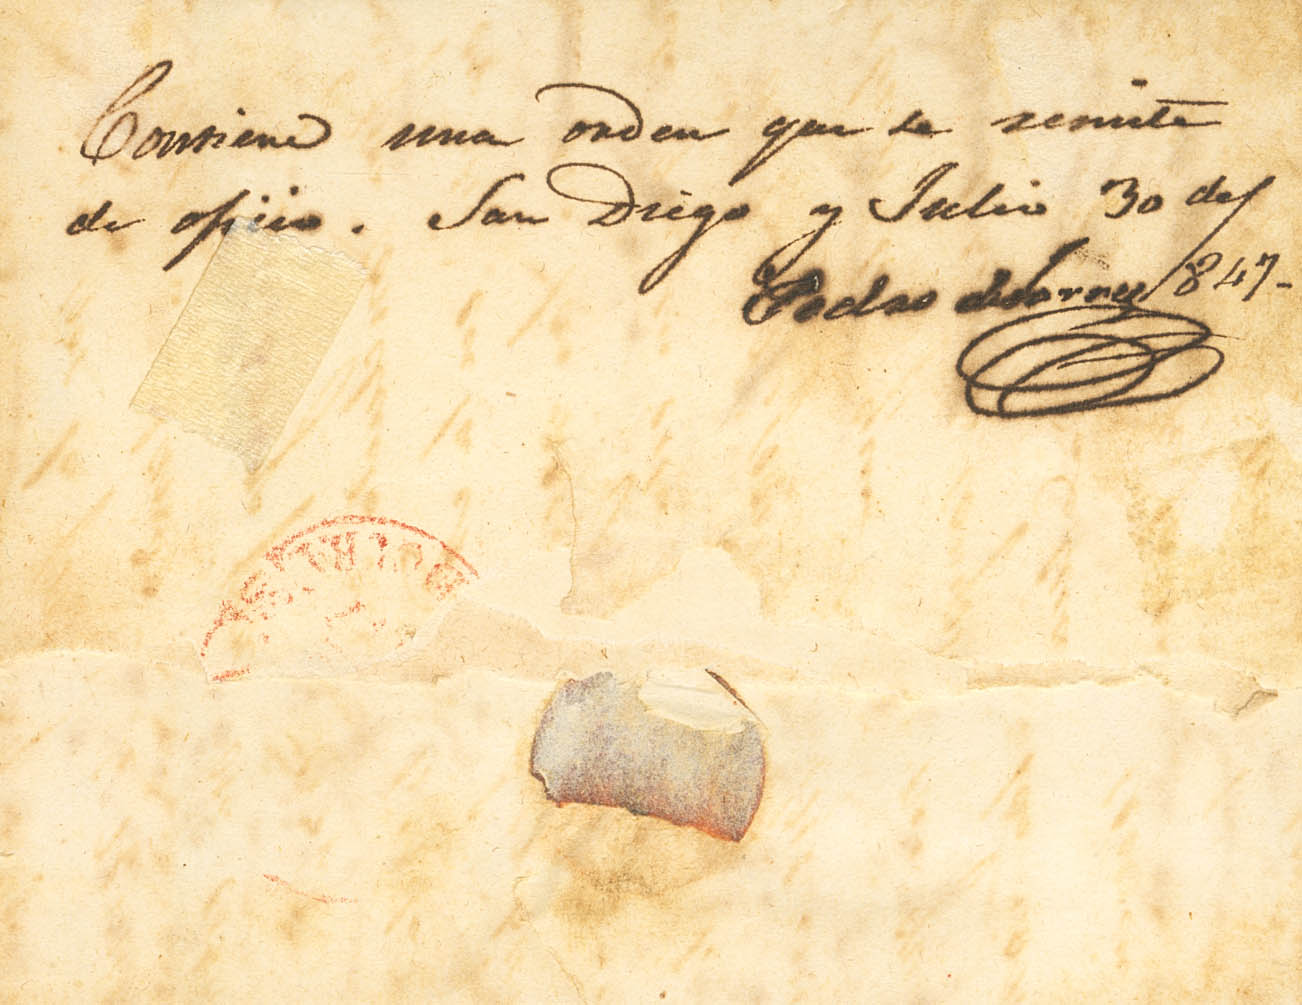 Contiene una orden que se remite
de oficio. San Diego y Julio 30 de
Pedro 1847-